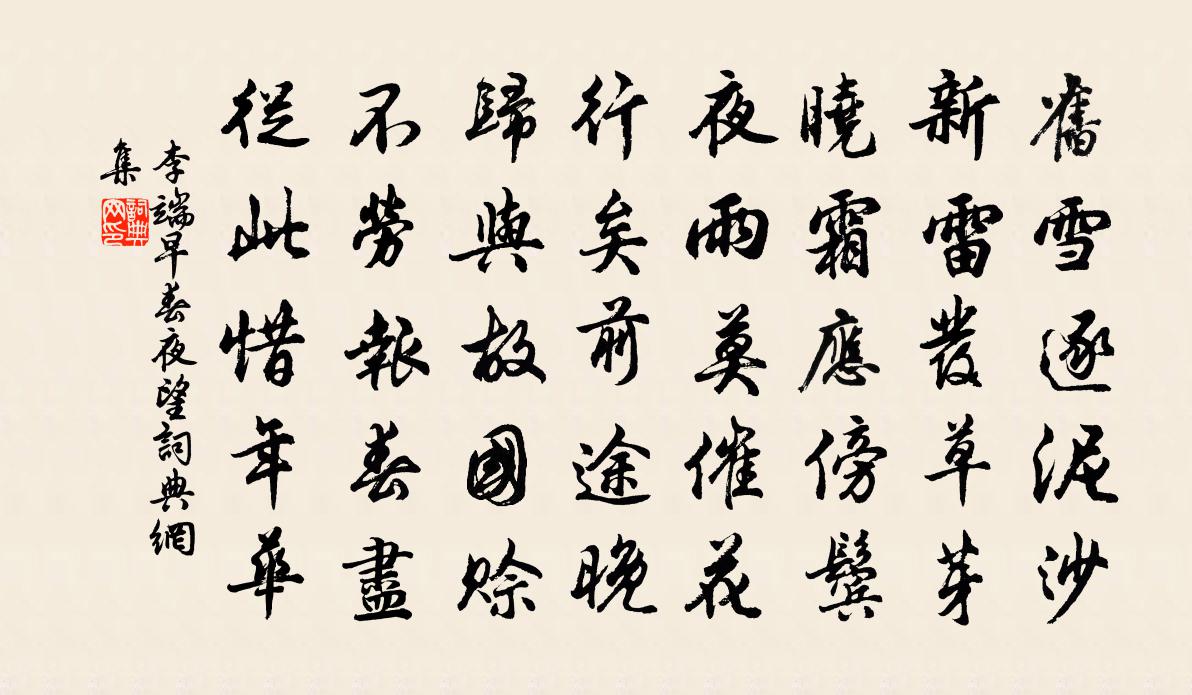 舊雪逐泥沙
新雷發草芽
曉霜應傍鬢
夜雨莫催花
行矣前途晚
歸與故國賒
不勞報春盡
從此惜年華
李端早春夜望詞典網
集
詞典
网印